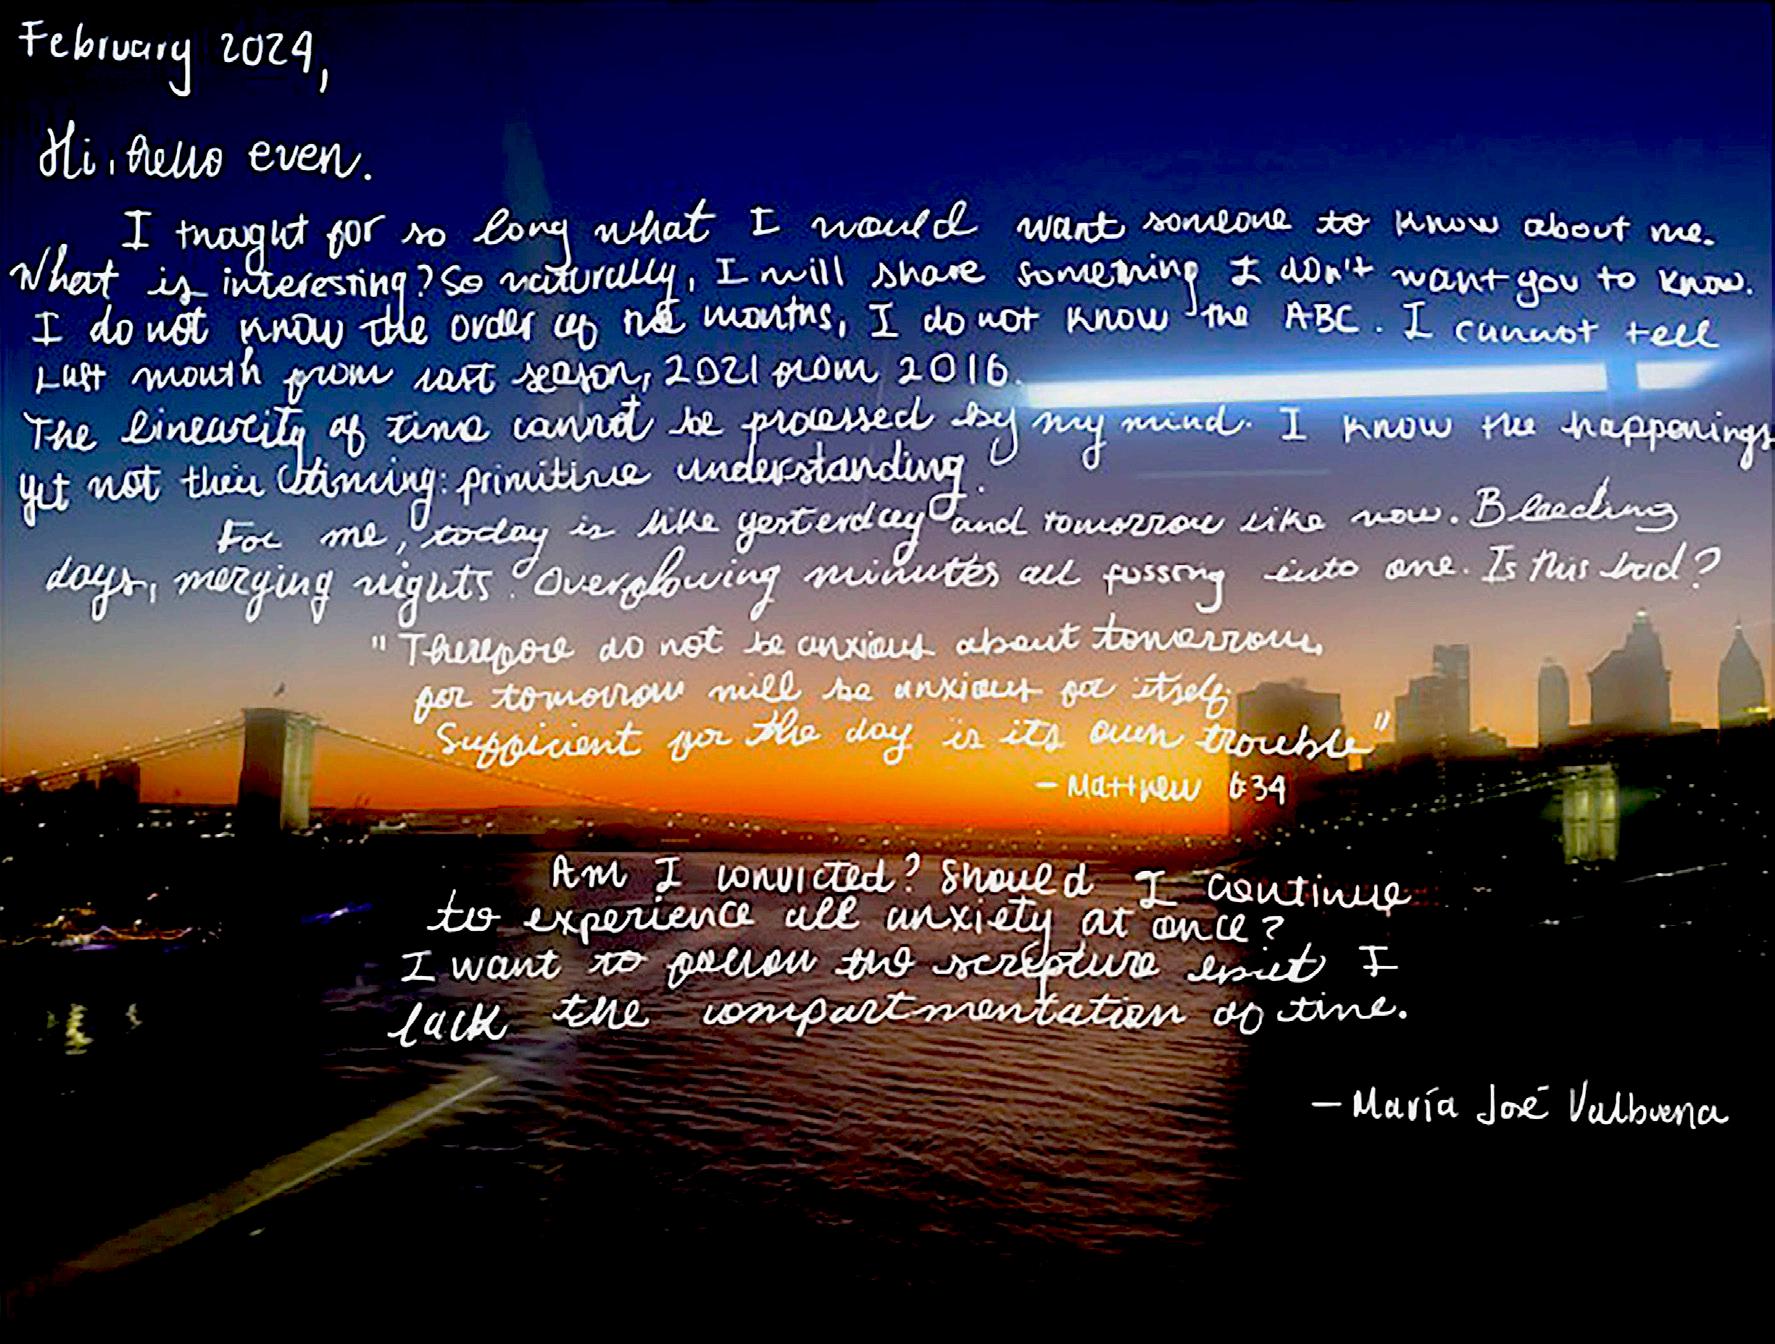 February 2024,
Hi, hello even.
I thaught for so long what I would want someone to know about me.
What is interesting? So naturally, I will share something I don't want you to know.
I do not know the order of the months, I do not know the ABC. I cannot tell
Last month from last season, 2021 from 2016.
The linearity of time cannot be processed by my mind. I know the happenings
yet not their timing: primitive understanding.
For me, today is like yesterday and tomorrow like now. Bleeding
days, merging nights. Overflowing minutes all fussing into one. Is this bad?
"Therefore do not be anxious about tomorrow,
for tomorrow will be anxious for itself
Sufficient for the day is its own trouble"
- Matthew 6:34
Am I convicted? Should I continue
to experience all anxiety at once?
I want to follow the scripture but I
lack the compartmentation of time.
- María José Valbuena